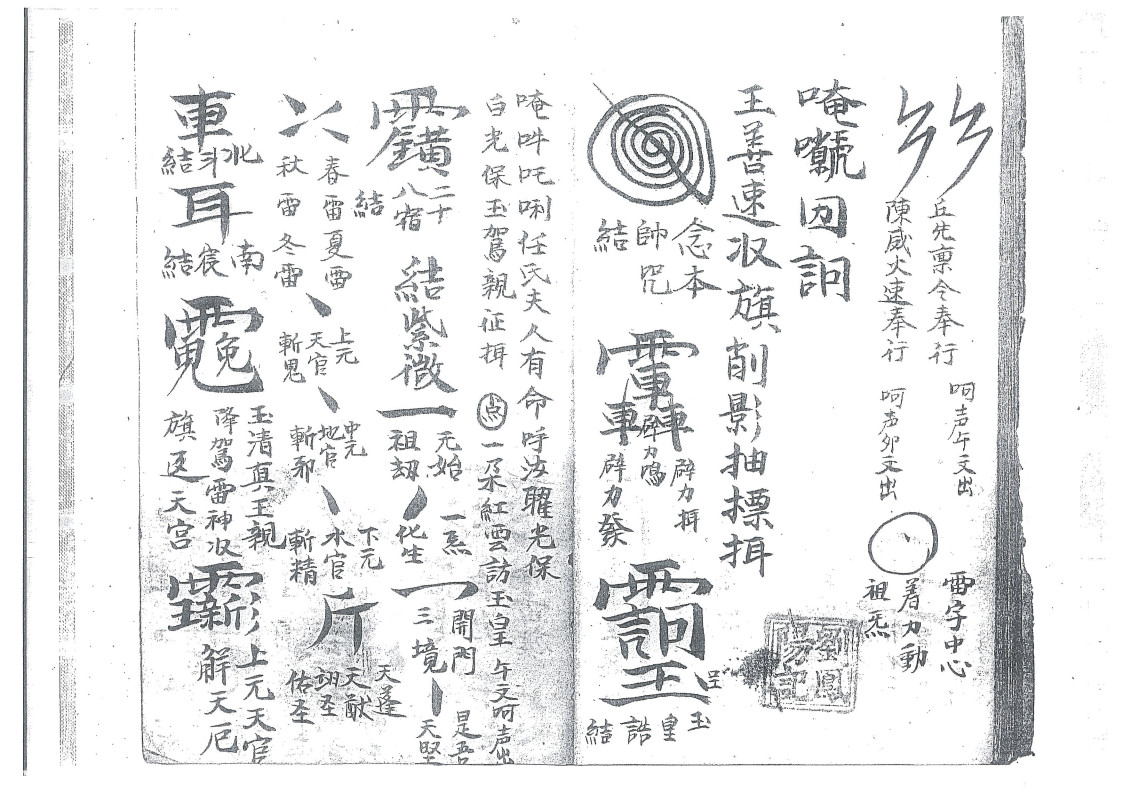 丘先禀令奉行
陳威火速奉行
呵声午文出
呵声卯文出
雷字中心
着力動
祖炁
唵 因訶
王善速収旗削影抽摽挕
念本
帥咒
結
霹力挕
霹力鳴
霹力發
玉
皇
誥
結
劉鳳
昜記
唵吽吒唎任氏夫人有命呼汝躍光保
自光保玉駕親征挕
点
一乃不紅雲訪玉皇
午文呵声出
二十
八宿
結
結紫微
一
元始
祖劫
一炁
化生
開門
三境
是吾
天堅
春雷夏雷
秋雷冬雷
上元
天官
斬鬼
中元
地官
斬邪
下元
水官
斬精
斤
天蓬
天猷
翊圣
佑圣
車
北
斗
結
耳
南
宸
結
玉清真王親
降駕雷神収
旗返天宫
上元天官
解天厄